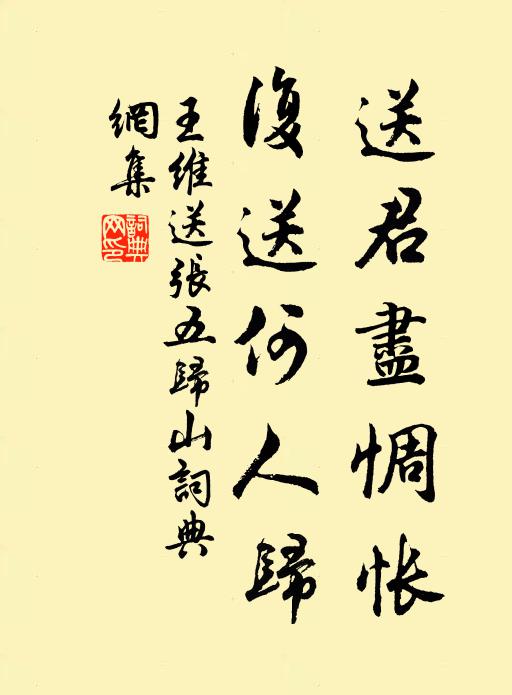 送君盡惆悵
復送何人歸
王維送張五歸山詞典
網集
詞典
网印